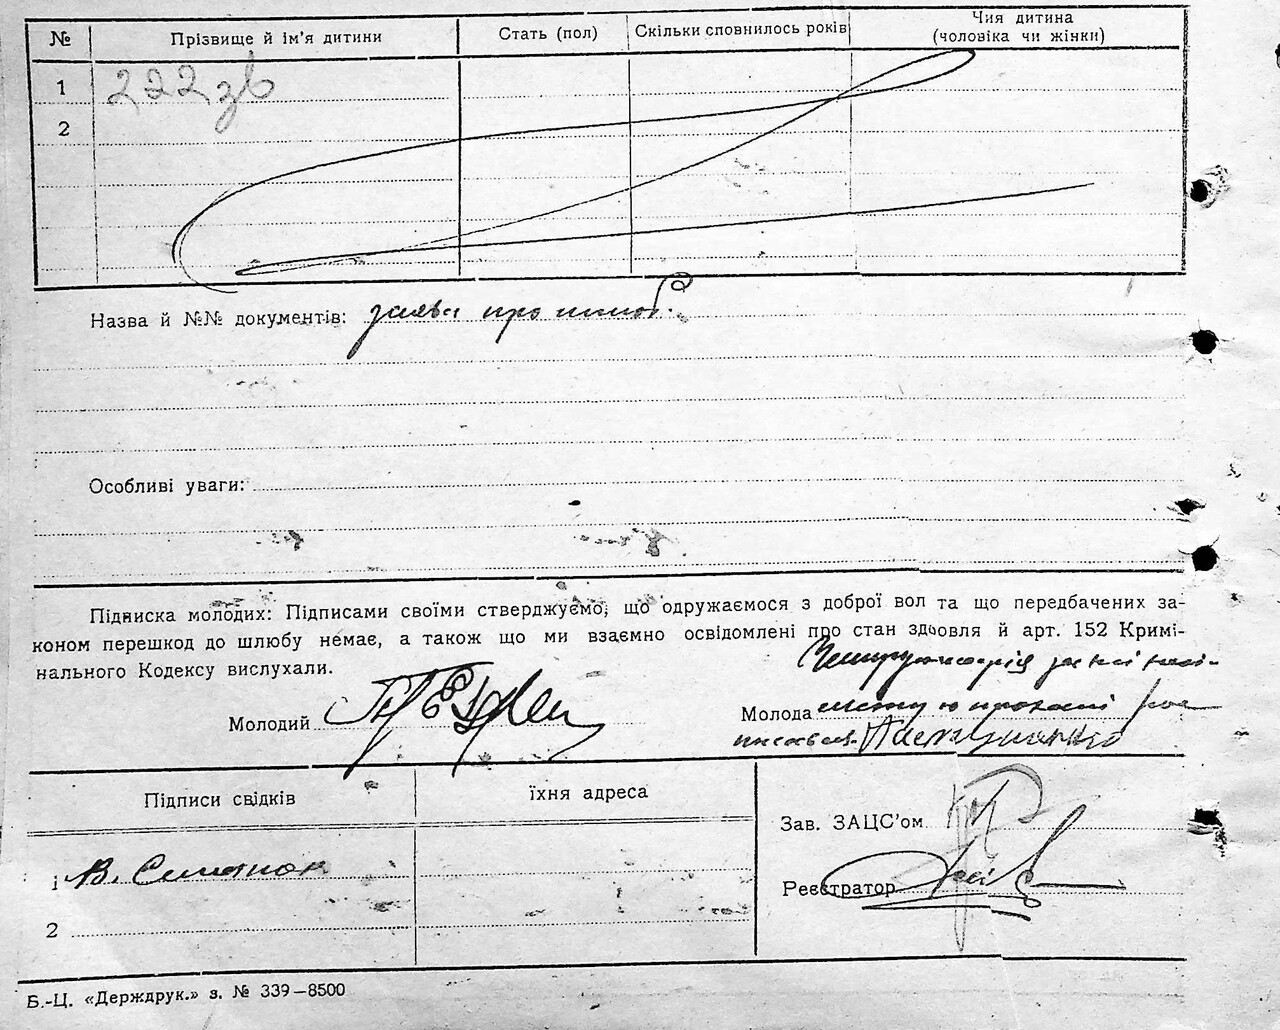 № Прізвище й ім'я дитини Стать (пол) Скільки сповнилось років Чия дитина (чоловіка чи жінки)
1 222 зв
2
Назва й №№ документів: заява про шлюб.
Особливі уваги:
Підписка молодих: Підписами своїми стверджуємо, що одружаємося з доброї вол та що передбачених за-
коном перешкод до шлюбу немає, а також що ми взаємно освідомлені про стан здоовля й арт. 152 Кримі-
нального Кодексу вислухали.
Молодий
Молода
Підписи свідків їхня адреса
Зав. ЗАЦС'ом
1 В.
Реєстратор
2
Б.-Ц. «Держдрук.» з. № 339—8500